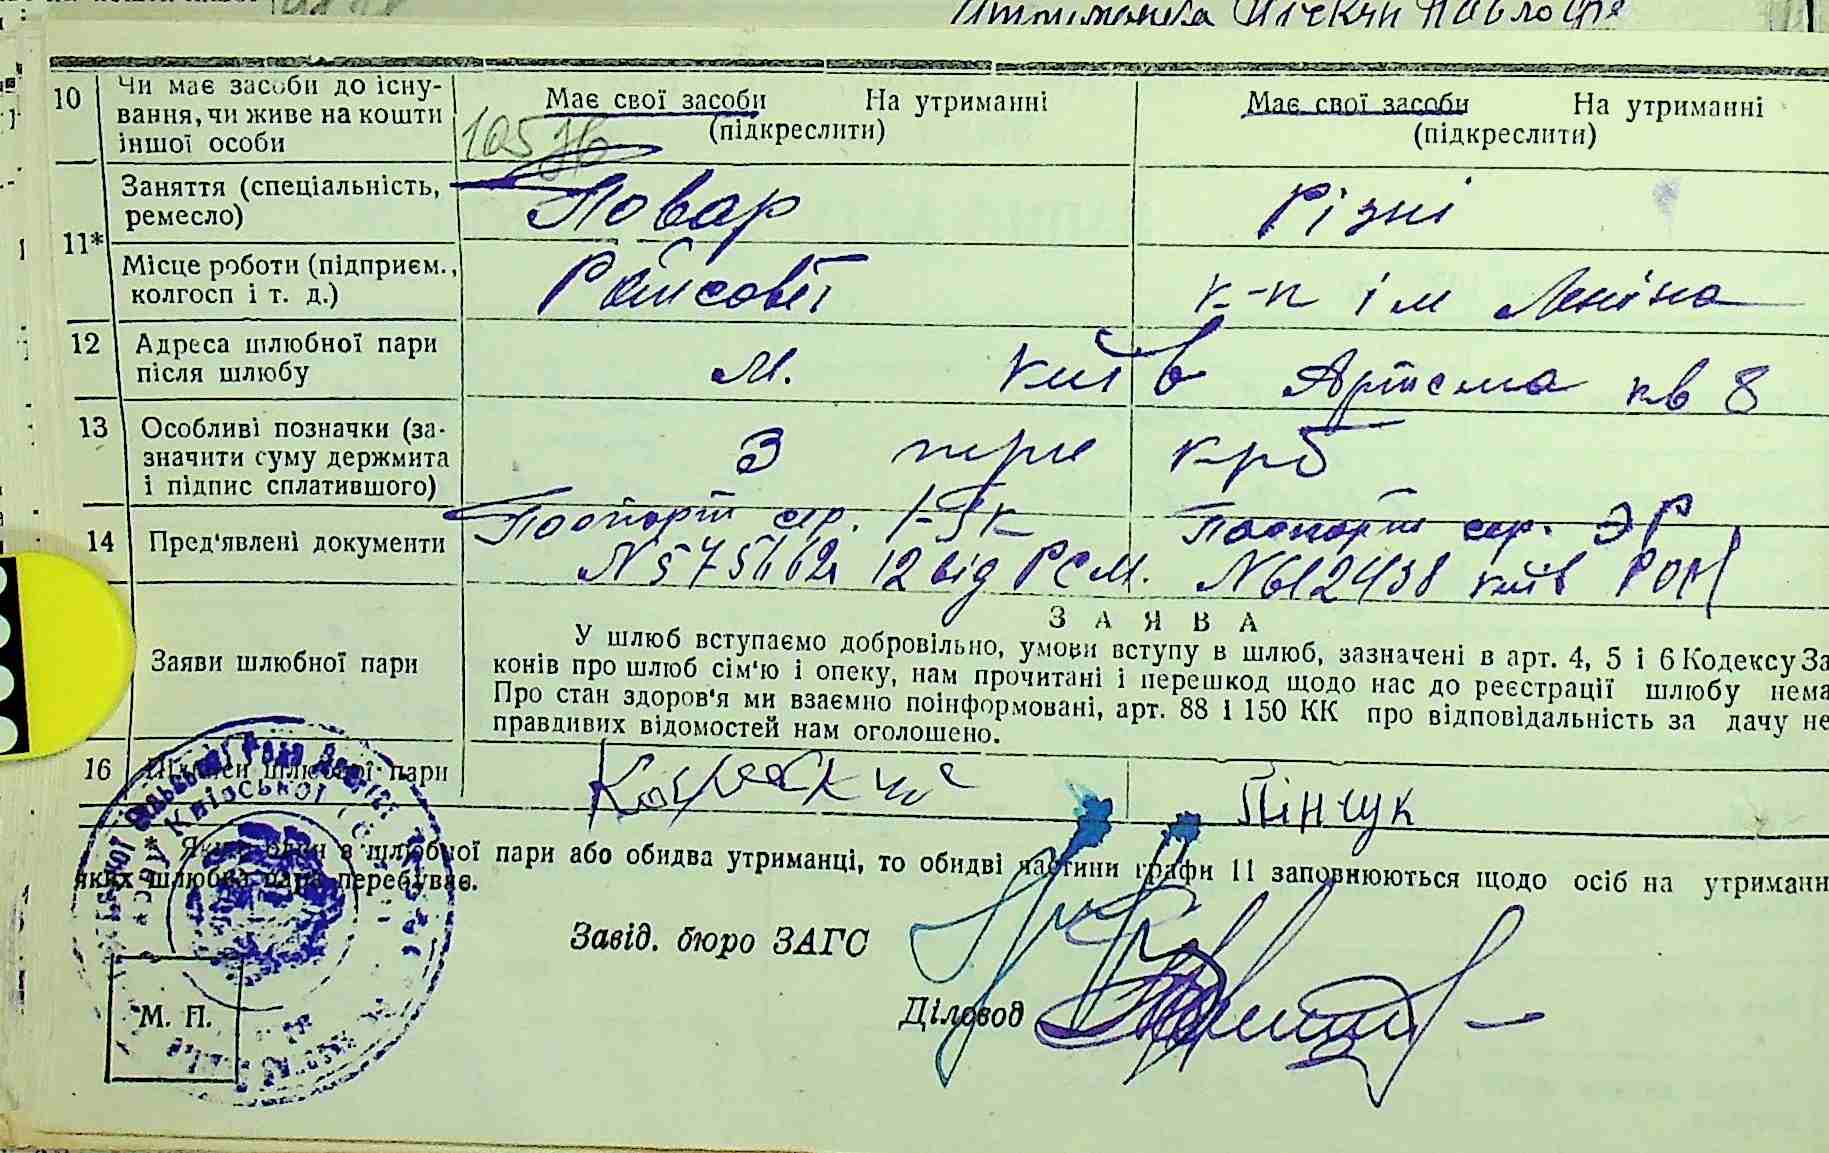 Павло
10 Чи має засоби до існу-
вання, чи живе на кошти
іншої особи
Має свої засоби На утриманні
(підкреслити)
Має свої засоби На утриманні
(підкреслити)
11* Заняття (спеціальність,
ремесло)
Повар
Різні
Місце роботи (підприєм.,
колгосп і т. д.)
Райсовєт
к-п ім Леніна
12 Адреса шлюбної пари
після шлюбу
м. Київ Артема кв 8
13 Особливі позначки (за-
значити суму держмита
і підпис сплатившого)
3 три крб
14 Пред'явлені документи
Паспорт сер.
від РСМ.
Паспорт сер. ЭР
N612438 Київ РОМ
Заяви шлюбної пари
ЗАЯВА
У шлюб вступаємо добровільно, умови вступу в шлюб, зазначені в арт. 4, 5 і 6 Кодексу За
конів про шлюб сім'ю і опеку, нам прочитані і перешкод щодо нас до реєстрації шлюбу нема
Про стан здоров'я ми взаємно поінформовані, арт. 88 і 150 КК про відповідальність за дачу не
правдивих відомостей нам оголошено.
16 Підписи шлюбної пари
Пінчук
* Якщо один з шлюбної пари або обидва утриманці, то обидві частини графи 11 заповнюються щодо осіб на утриманн
яких шлюбна пара перебуває.
Завід. бюро ЗАГС
Діловод
М. П.
Київської